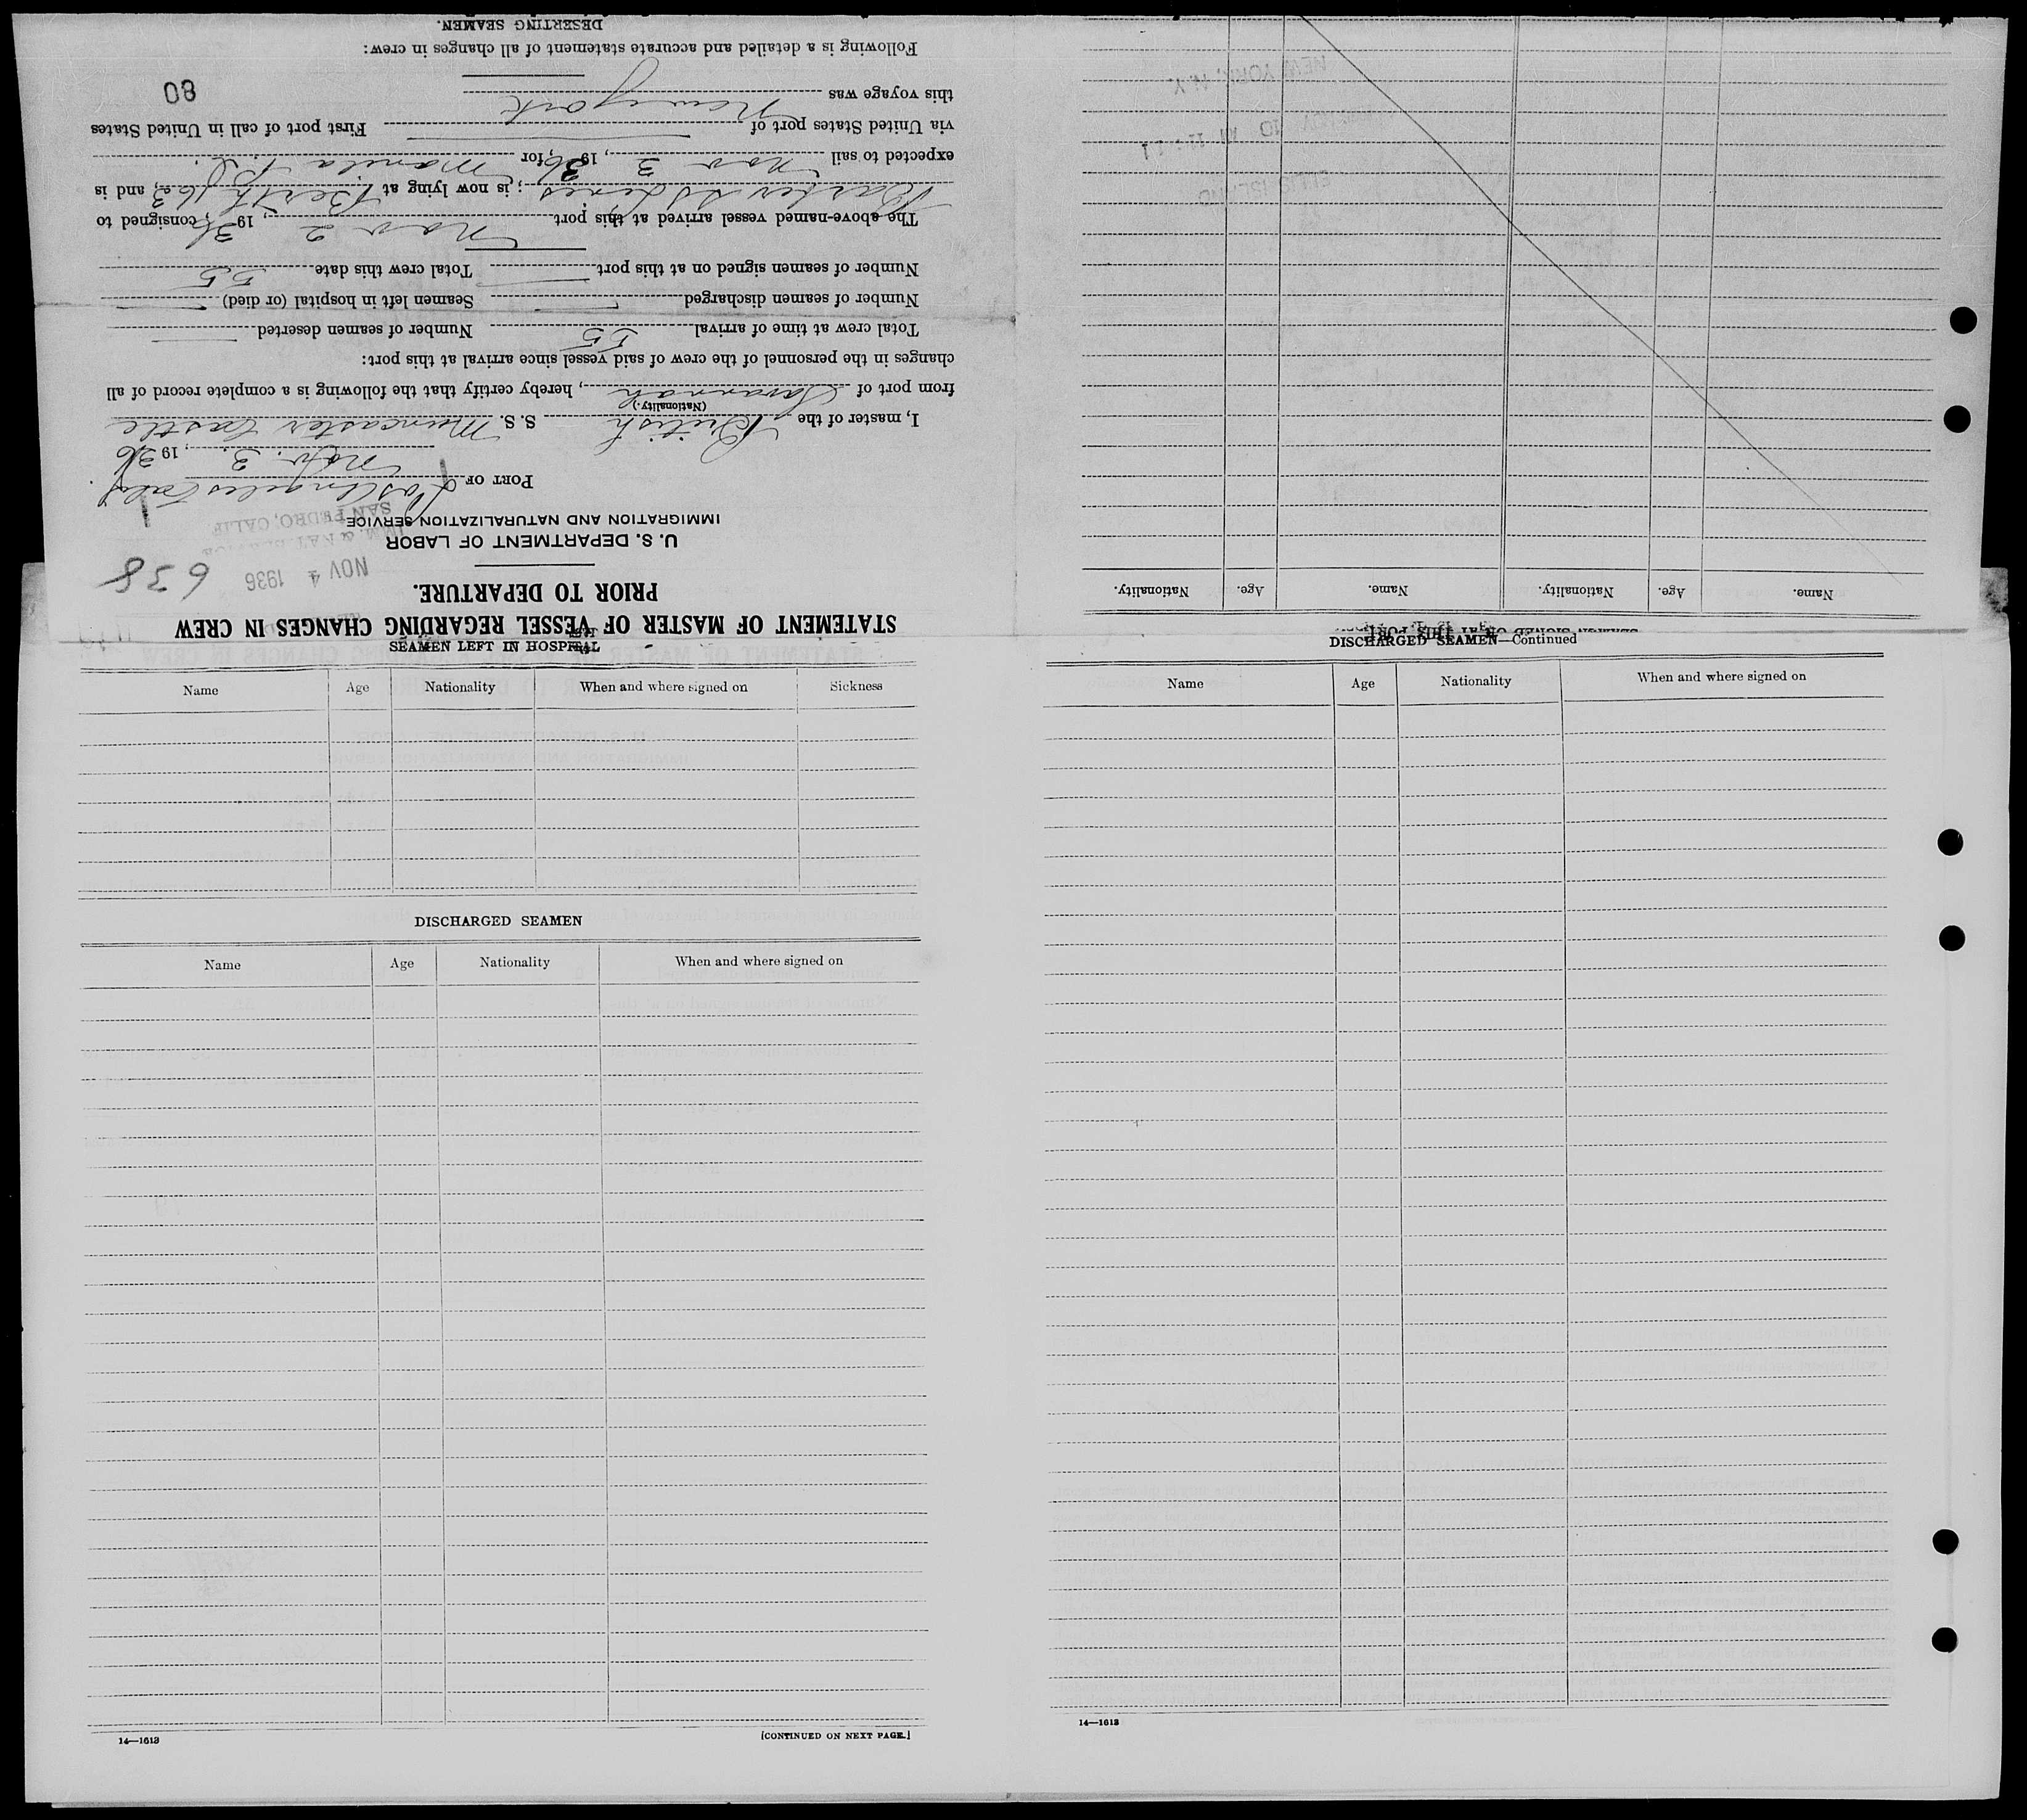 STATEMENT OF MASTER OF VESSEL REGARDING CHANGES IN CREW
PRIOR TO DEPARTURE.
638
NOV 4 1936
U. S. DEPARTMENT OF LABOR
IMMIGRATION AND NATURALIZATION SERVICE
SAN PEDRO, CALIF
PORT OF Los Angeles Calif
Nov. 3, 1936
I, master of the British S. S. Muncaster Castle
(Nationality.)
from port of Savannah, hereby certify that the following is a complete record of all
changes in the personnel of the crew of said vessel since arrival at this port:
Total crew at time of arrival 55 Number of seamen deserted
Number of seamen discharged Seamen left in hospital (or died)
Number of seamen signed on at this port Total crew this date 55
The above-named vessel arrived at this port Nov 2, 1936, consigned to
Barber SS Lines; is now lying at Berth, and is
expected to sail Nov 3, 1936, for Manila P.I.
via United States port of First port of call in United States
this voyage was New York
80
Following is a detailed and accurate statement of all changes in crew:
DESERTING SEAMEN.
Name. Age. Nationality. Name. Age. Nationality.
NEW YORK, N.Y.
ELLIS ISLAND
SEAMEN LEFT IN HOSPITAL
Name Age Nationality When and where signed on Sickness
DISCHARGED SEAMEN
Name Age Nationality When and where signed on
14—1613
[CONTINUED ON NEXT PAGE.]
DISCHARGED SEAMEN—Continued
Name Age Nationality When and where signed on
14—1613